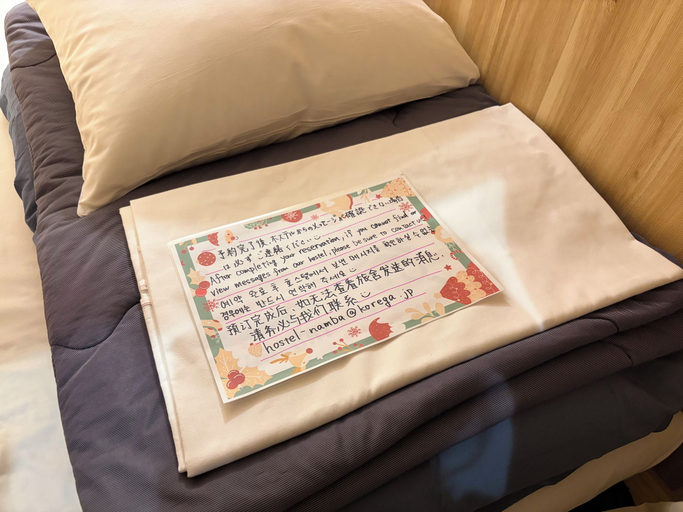 予約完了後、ホステルからのメッセージが確認できない場合
は必ずご連絡ください
After completing your reservation, if you cannot find or
view messages from our hostel, please be sure to contact us
예약 완료 후 호스텔에서 보낸 메시지를 확인하실 수 없는
경우에는 반드시 연락해 주세요
预订完成后,如无法查看旅舍发送的消息,
请务必与我们联系
hostel-namba@korega.jp